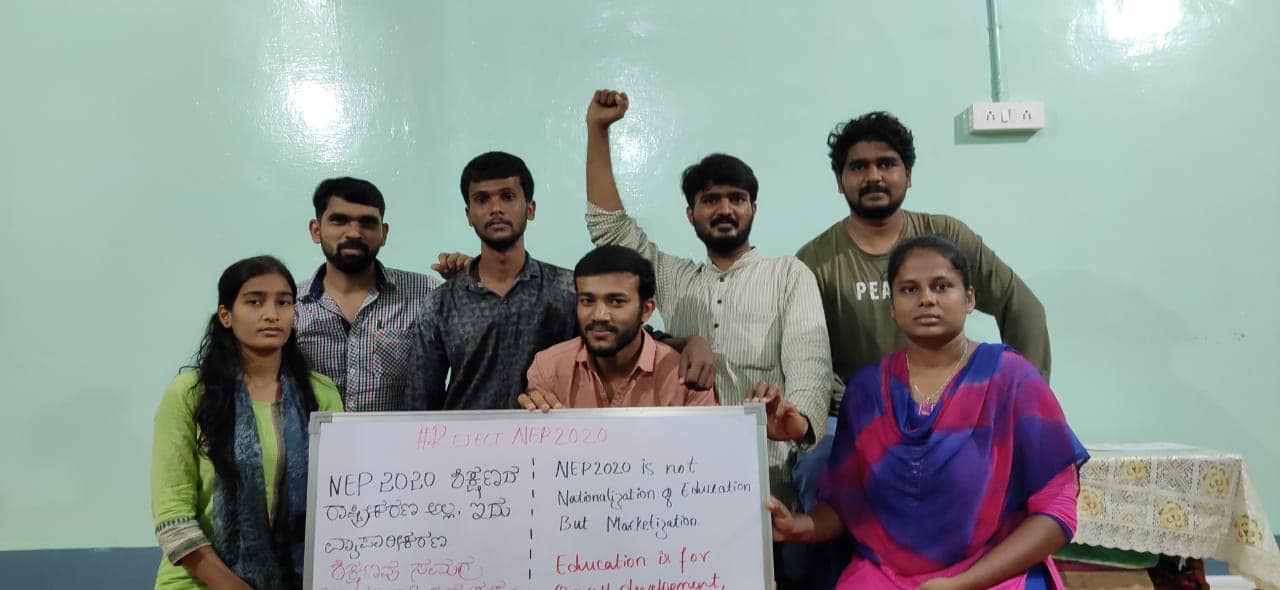 PEA
#REJECT NEP2020
NEP 2020 ಶಿಕ್ಷಣದ
ರಾಷ್ಟ್ರೀಕರಣ ಅಲ್ಲ. ಇದು
ವ್ಯಾಪಾರೀಕರಣ
ಶಿಕ್ಷಣವು ಸಮಗ್ರ
NEP2020 is not
Nationalization of Education
But Marketization
Education is for
Overall development,